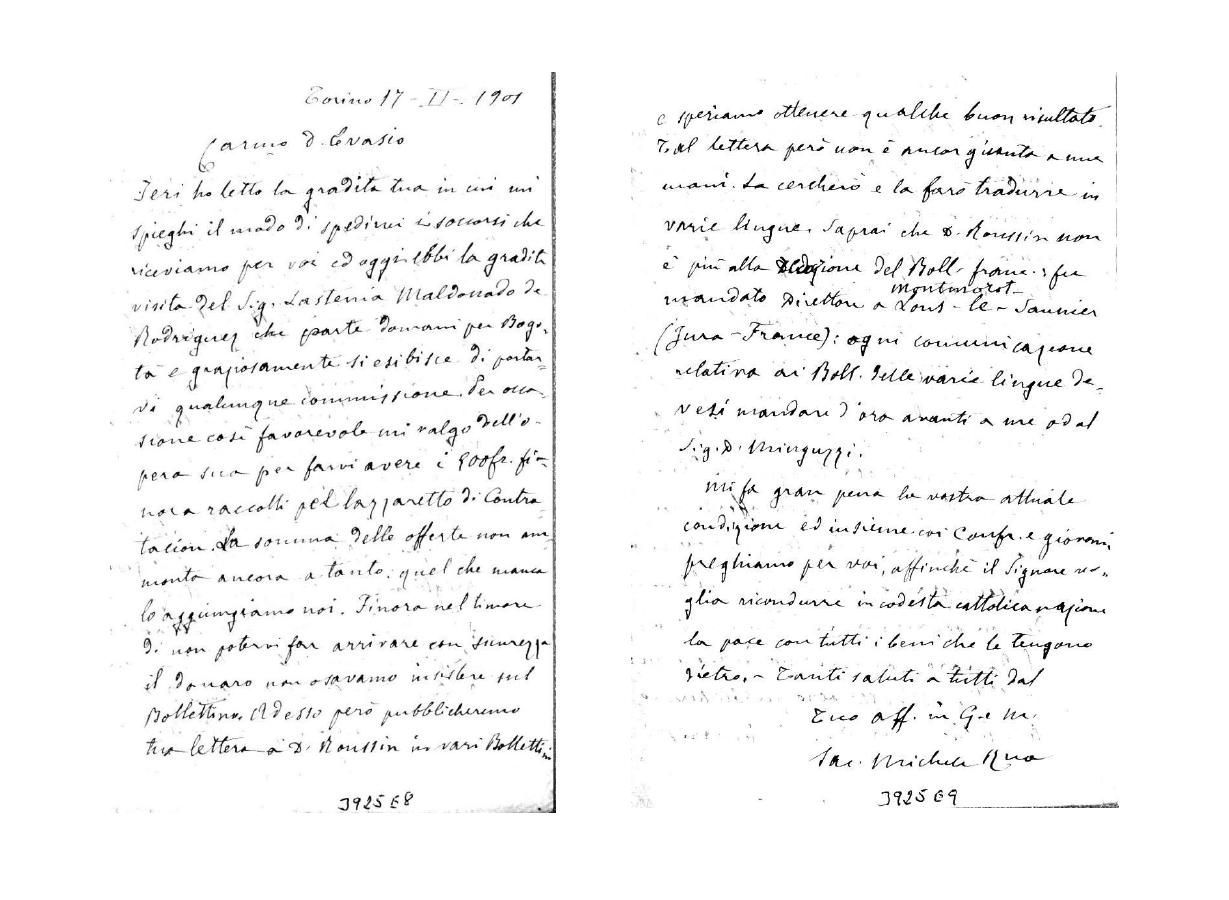 Torino 17-II-1901
Carmo D. Evasio
Ieri ho letto la gradita tua in cui mi
spieghi il modo di spedirvi i soccorsi che
riceviamo per voi ed oggi ebbi la gradita
visita del Sig. Lastenia Maldonado de
Rodriguez che parte domani per Bogo-
tà e graziosamente si esibisce di portar-
vi qualunque commissione. Per occa-
sione così favorevole mi valgo dell'o-
pera sua per farvi avere i fr. fi-
nora raccolti pel lazzaretto di Contra-
tacion. La somma delle offerte non am-
monta ancora a tanto: quel che manca
lo aggiungiamo noi. Finora nel timore
di non potervi far arrivare con sicurezza
il danaro non osavamo insistere sul
Bollettino. Adesso però pubblicheremo
tua lettera a D. Roussin in vari Bollettini
e speriamo ottenere qualche buon risultato.
Tal lettera però non è ancor giunta a mie
mani. La cercherò e la farò tradurre in
varie lingue. Saprai che D. Roussin non
è più alla del Boll. franc.: fu
Montmorot
mandato Direttore a Lons-le-Saunier
(Jura-France): ogni comunicazione
relativa ai Boll. delle varie lingue de-
vesi mandare d'ora avanti a me od al
Sig. D. Minguzzi.
Mi fa gran pena la vostra attuale
condizione ed insieme coi Confr. e giovani
preghiamo per voi, affinchè il Signore vo-
glia ricondurre in codesta cattolica nazione
la pace con tutti i beni che le tengono
dietro. - Tanti saluti a tutti dal
Tuo aff. in G. e M.
Sac. Michele Rua
3925E8
3925E9